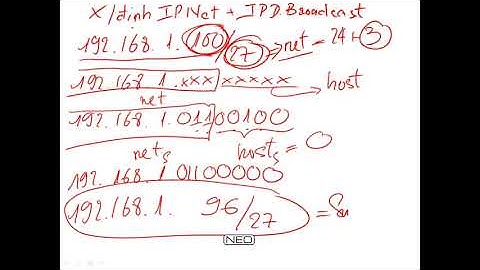 X/định IP Net + IP D.Broadcast
192.168.1.100/27 => net = 24+3
192.168.1.xxx xxxxx host
net
192.168.1.01100100
nets hosts = 0
192.168.1.01100000
192.168.1. 96/27 = Su
NEO